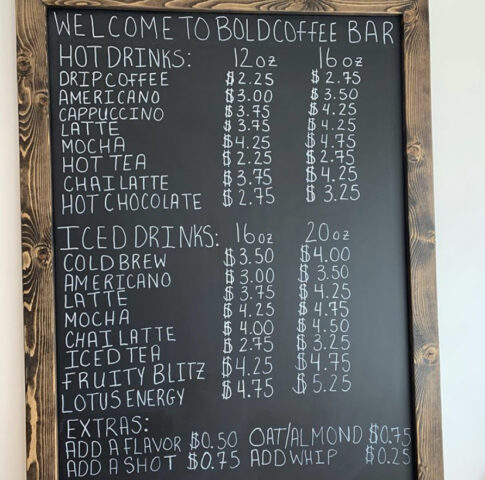 WELCOME TO BOLD COFFEE BAR
HOT DRINKS: 12oz 16oz
DRIP COFFEE $2.25 $2.75
AMERICANO $3.00 $3.50
CAPPUCCINO $3.75 $4.25
LATTE $3.75 $4.25
MOCHA $4.25 $4.75
HOT TEA $2.25 $2.75
CHAI LATTE $3.75 $4.25
HOT CHOCOLATE $2.75 $3.25
ICED DRINKS: 16oz 20oz
COLD BREW $3.50 $4.00
AMERICANO $3.00 $3.50
LATTE $3.75 $4.25
MOCHA $4.25 $4.75
CHAI LATTE $4.00 $4.50
ICED TEA $2.75 $3.25
FRUITY BLITZ $4.25 $4.75
LOTUS ENERGY $4.75 $5.25
EXTRAS:
ADD A FLAVOR $0.50 OAT/ALMOND $0.75
ADD A SHOT $0.75 ADD WHIP $0.25